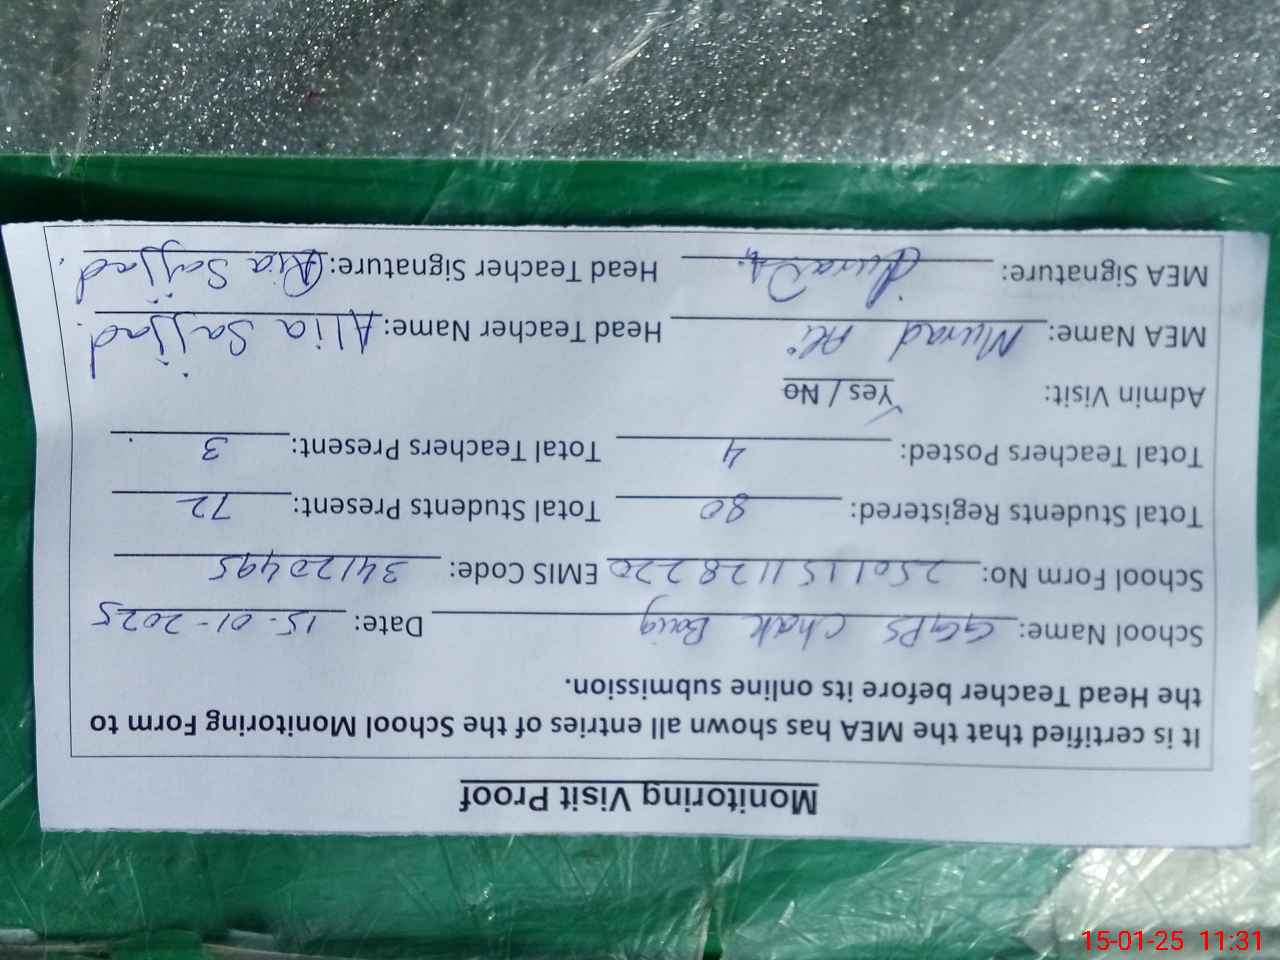 Monitoring Visit Proof
It is certified that the MEA has shown all entries of the School Monitoring Form to
the Head Teacher before its online submission.
School Name: GGPS Chak Baig Date: 15-01-2025
School Form No: 2501151128220 EMIS Code: 34120495
Total Students Registered: 80 Total Students Present: 72
Total Teachers Posted: 4 Total Teachers Present: 3
Admin Visit: Yes / No
MEA Name: Murad Ali Head Teacher Name: Alia Sajjad.
MEA Signature: Head Teacher Signature: Alia Sajjad.
15-01-25 11:31